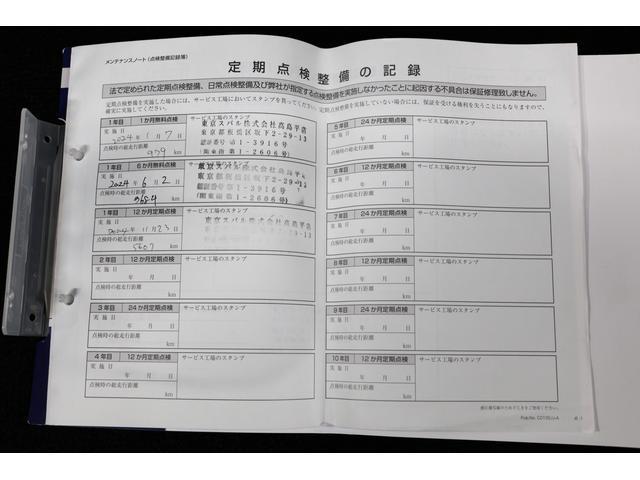 メンテナンスノート（点検整備記録簿）
定期点検整備の記録
法で定められた定期点検整備、日常点検整備及び弊社が指定する点検整備を実施しなかったことに起因する不具合は保証修理致しません。
定期点検整備を実施した場合には、サービス工場においてスタンプを貰ってください。定期点検整備を実施していない場合には、保証を受ける権利を失うこともありますので、
確実に実施してください。
1年目 1か月無料点検 サービス工場のスタンプ
実施日
2024年11月7日
点検時の総走行距離
959 km
東京スバル株式会社高島平店
東京都板橋区坂下2-29-13
認証番号 1-3916号
(関東指第1-2606号)
1年目 6か月無料点検 サービス工場のスタンプ
実施日
2024年6月2日
点検時の総走行距離
km
東京スバル株式会社高島平
東京都板橋区坂下2-29-13
認証番号第1-3916号
(関東指第1-2606号)
1年目 12か月定期点検 サービス工場のスタンプ
実施日
2024年11月23日
点検時の総走行距離
5607 km
東京スバル株式会社高島平店
2年目 12か月定期点検 サービス工場のスタンプ
実施日
年 月 日
点検時の総走行距離
km
3年目 24か月定期点検 サービス工場のスタンプ
実施日
年 月 日
点検時の総走行距離
km
4年目 12か月定期点検 サービス工場のスタンプ
実施日
年 月 日
点検時の総走行距離
km
5年目 24か月定期点検 サービス工場のスタンプ
実施日
年 月 日
点検時の総走行距離
km
6年目 12か月定期点検 サービス工場のスタンプ
実施日
年 月 日
点検時の総走行距離
km
7年目 24か月定期点検 サービス工場のスタンプ
実施日
年 月 日
点検時の総走行距離
km
8年目 12か月定期点検 サービス工場のスタンプ
実施日
年 月 日
点検時の総走行距離
km
9年目 24か月定期点検 サービス工場のスタンプ
実施日
年 月 日
点検時の総走行距離
km
10年目 12か月定期点検 サービス工場のスタンプ
実施日
年 月 日
点検時の総走行距離
km